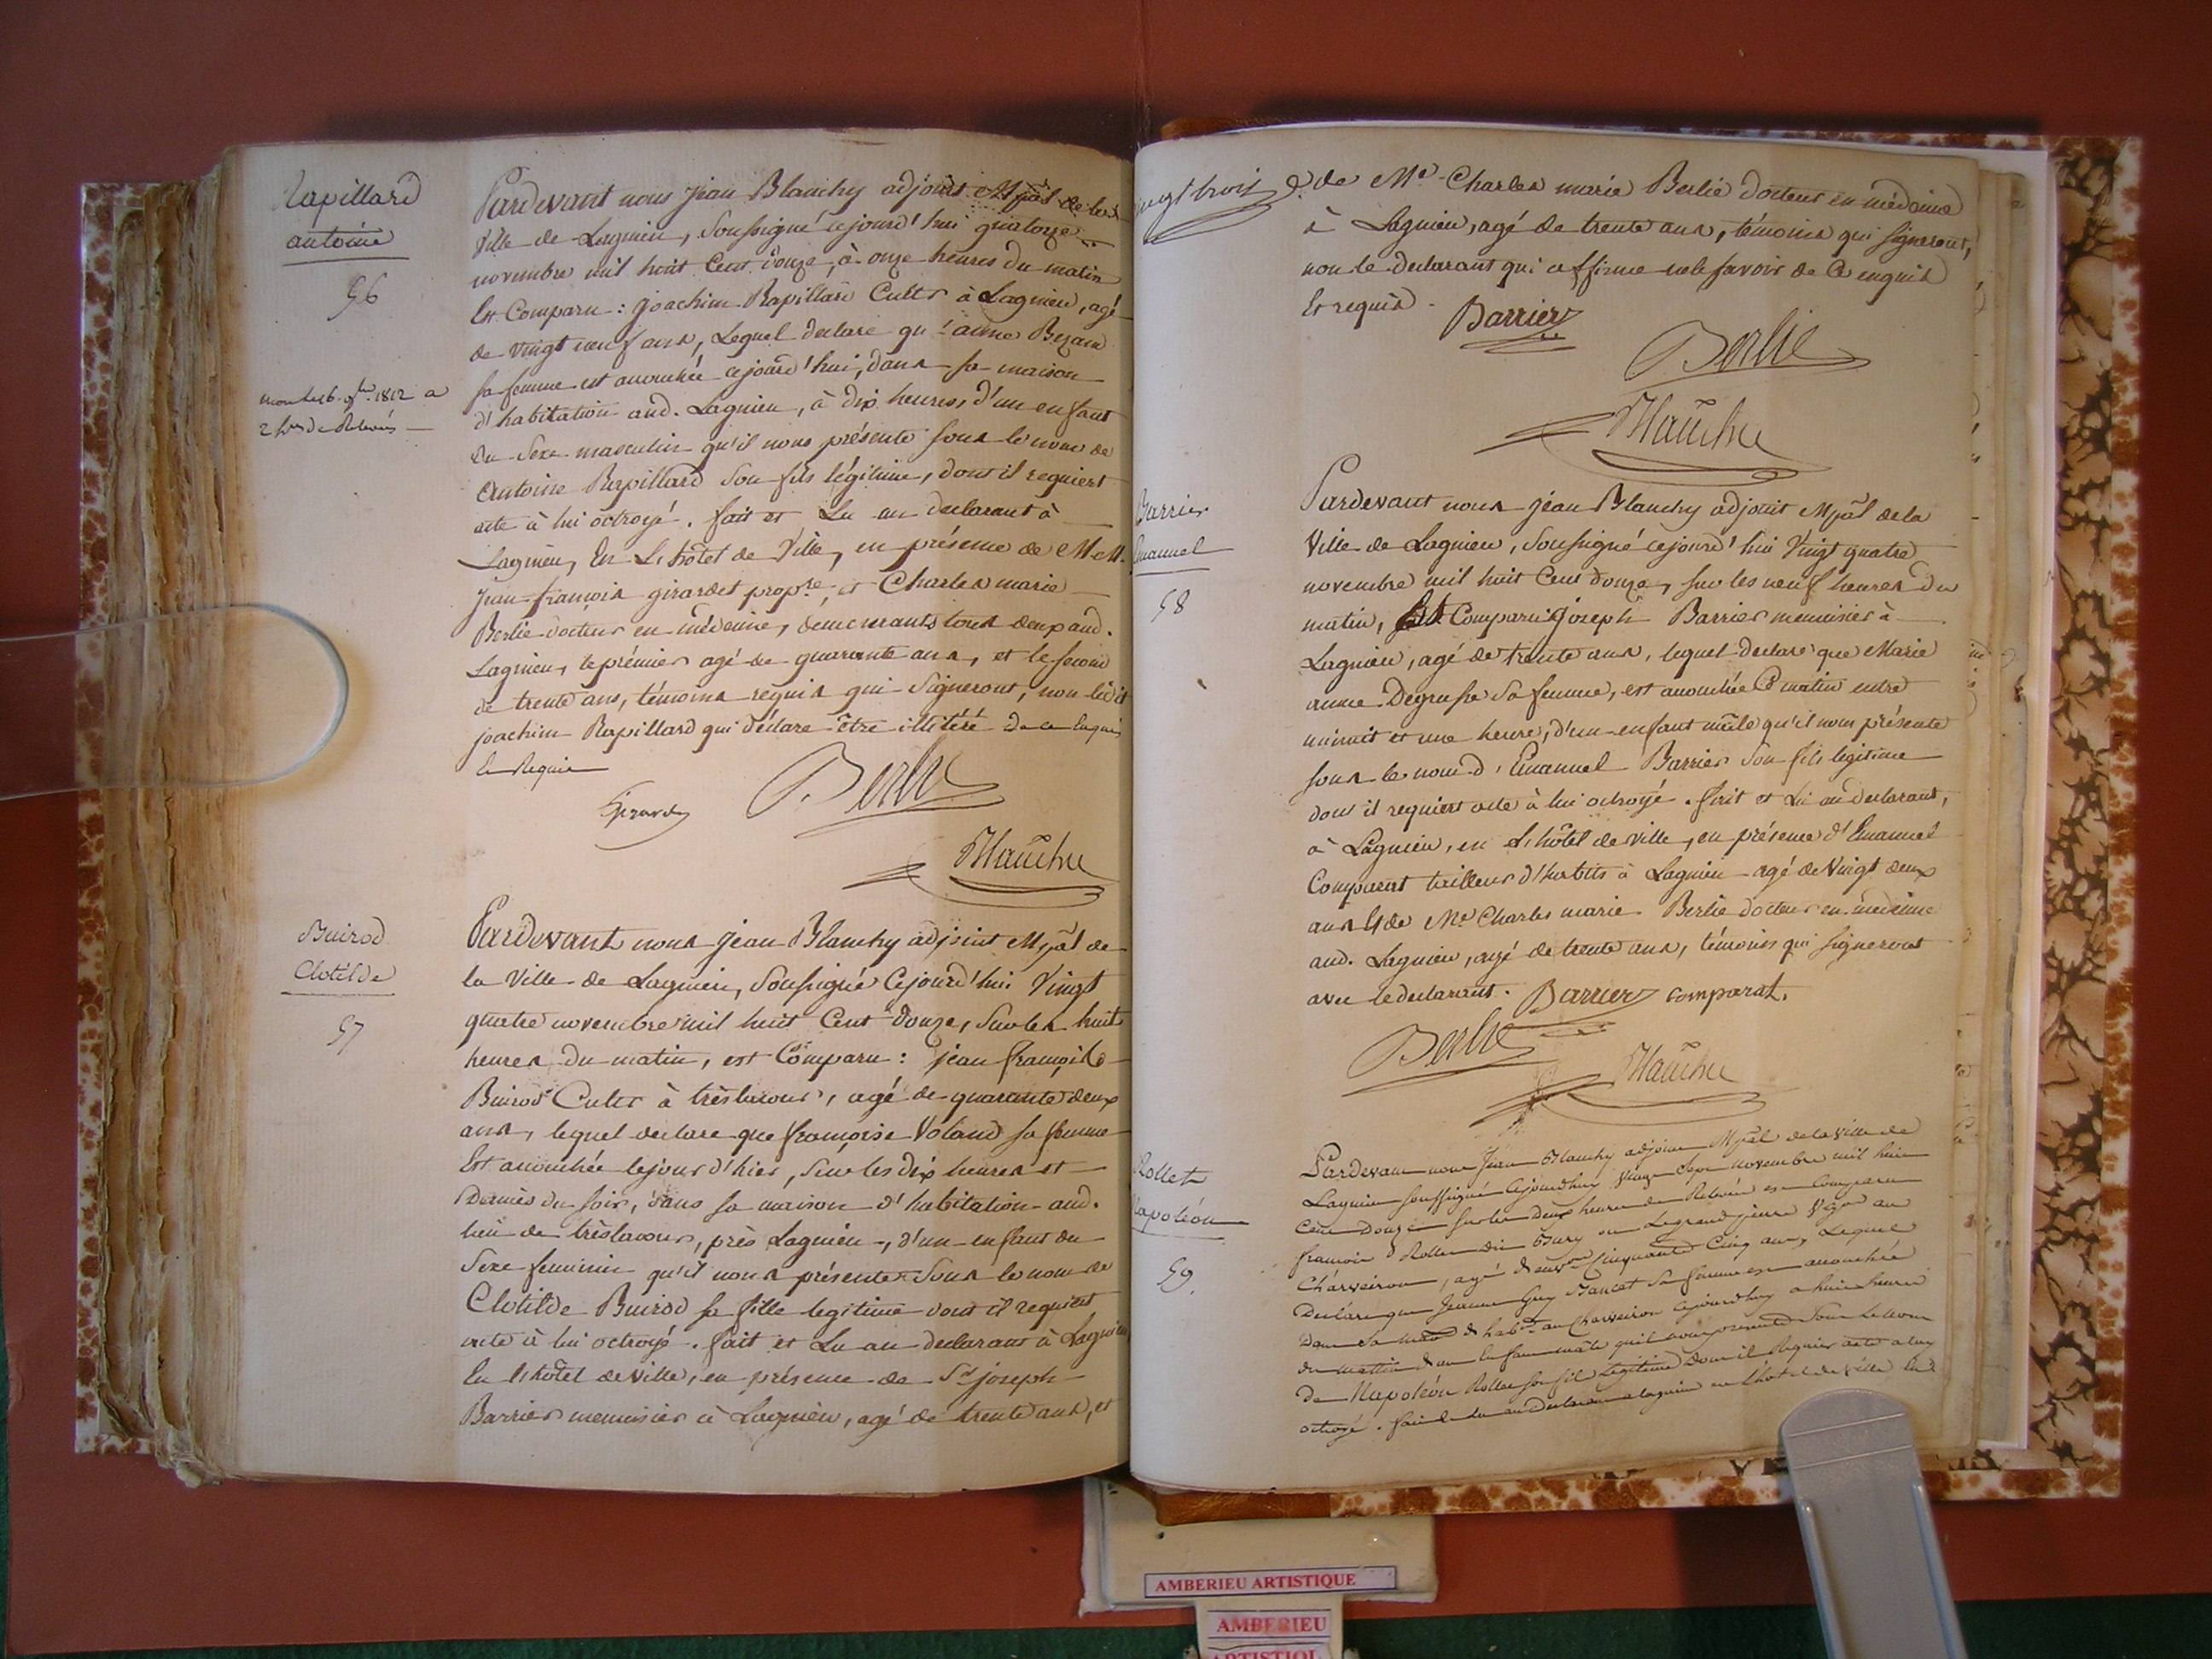 Rapillard
antoine
56
2 hres de Relevée
Pardevant nous Jean Blanchy adjoint Mpãl de la
Ville de Lagnieu, Soussigné cejourd'hui quatorze
novembre mil huit Cent douze, à onze heures du matin
Est Comparu : joachim Rapillard Cultr à Lagnieu, agé
de vingt neuf ans, Lequel declare qu'anne
sa femme est accouchée cejourd'hui, dans sa maison
d'habitation aud. Lagnieu, à dix heures, d'un enfant
du Sexe masculin qu'il nous présente sous le nom de
Antoine Rapillard Son fils légitime, dont il requiert
acte à lui octroyé. fait et Lu au declarant à
Lagnieu, En L'hôtel de Ville, en présence de MM.
Jean françois girardet propre, et Charles marie
Berlie docteur en médecine, demeurants tous deux aud.
Lagnieu, le prémier agé de quarante ans, et le second
de trente ans, témoins requis qui Signeront, non ledit
joachim Rapillard qui déclare être illitéré de ce Enquis
Et Requis
Girardet
Berlie
Blanchy
Buirod
Clotilde
57
Pardevant nous Jean Blanchy adjoint Mpãl de
la Ville de Lagnieu, Soussigné Cejourd'hui Vingt
quatre novembre mil huit Cent douze, Sur les huit
heures du matin, est Comparu : jean françois
Buirod Cultr à , agé de quarante deux
ans, lequel declare que françoise Voland sa femme
Est accouchée lejour d'hier, Sur les dix heures et
Demies du soir, dans sa maison d'habitation aud.
lieu de , près Lagnieu, d'un enfant du
Sexe feminin qu'il nous présente Sous le nom de
Clotilde Buirod sa fille legitime dont il requiert
acte à lui octroyé. fait et Lu au declarant à Lagnieu
En L'hôtel de Ville, en présence de Sr joseph
Barrier menuisier à Lagnieu, agé de trente ans, et
vingt trois
de Mr Charles marie Berlie docteur en médecine
à Lagnieu, agé de trente ans, témoins qui signeront,
non le declarant qui affirme ne le savoir de Ce enquis
Et requis.
Barrier
Berlie
Blanchy
Barrier
Emanuel
58
Pardevant nous jean Blanchy adjoint Mpãl de la
Ville de Lagnieu, Soussigné cejourd'hui Vingt quatre
novembre mil huit Cent douze, sur les neuf heures du
matin, Est Comparu joseph Barrier menuisier à
Lagnieu, agé de trente ans, lequel declare que Marie
anne sa femme, est accouchée Ce matin entre
minuit et une heure, d'un enfant mâle qu'il nous présente
sous le nom d'Emanuel Barrier Son fils legitime
dont il requiert acte à lui octroyé. fait et Lu au declarant,
à Lagnieu, en L'hôtel de ville, en présence d'Emanuel
tailleur d'habits à Lagnieu agé de Vingt deux
ans & de Mr Charles marie Berlie docteur en médecine
aud. Lagnieu, agé de trente ans, témoins qui signeront
avec le declarant. Barrier comparat.
Berlie
Blanchy
Rollet
Napoléon
59.
Pardevant nous Jean Blanchy adjoint Mpãl de la Ville de
Lagnieu soussigné Cejourdhuy Vingt Sept novembre mil huit
Cent Douze sur les Deux heures de Relevée est Comparu
françois Rollet Dit ou Legrand jeune au
, agé denvon Cinquante Cinq ans, Lequel
Déclare que Jeanne Guy sa femme est accouchée
Dans Sa d'habon au Cejourdhuy a huit heures
du matin d'un Enfant mâle quil nous présente Sous Le nom
De Napoléon Rollet son fils Légitime Dont il Requiert acte a luy
octroyé. fait & Lu au Declarant a Lagnieu en L'hôtel de Ville En
AMBERIEU ARTISTIQUE
AMBERIEU